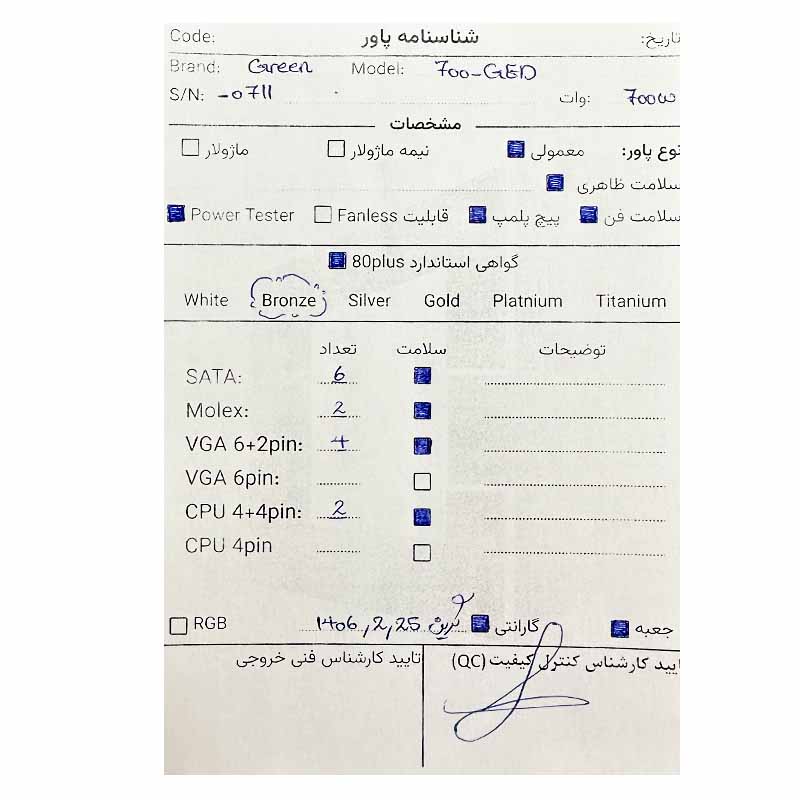 Code: شناسنامه پاور تاریخ:
Brand: Green Model: 700-GED
S/N: -0711 وات: 700W
مشخصات
نوع پاور: معمولی نیمه ماژولار ماژولار
سلامت ظاهری
سلامت فن پیچ پلمپ قابلیت Fanless Power Tester
گواهی استاندارد 80plus
White Bronze Silver Gold Platnium Titanium
تعداد سلامت توضیحات
SATA: 6
Molex: 2
VGA 6+2pin: 4
VGA 6pin:
CPU 4+4pin: 2
CPU 4pin
جعبه گارانتی گرین 1406,2,25 RGB
تایید کارشناس کنترل کیفیت (QC) تایید کارشناس فنی خروجی